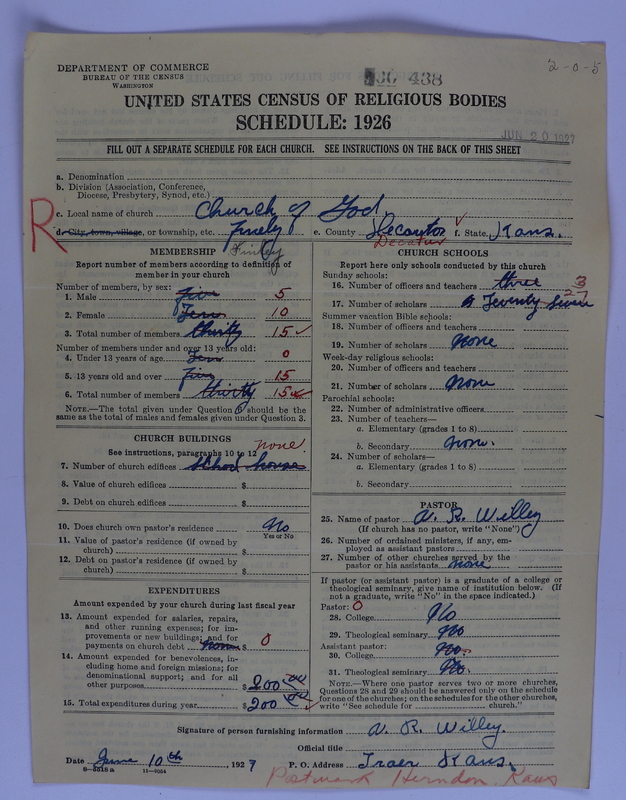 DEPARTMENT OF COMMERCE
BUREAU OF THE CENSUS
WASHINGTON
438
2-0-5
UNITED STATES CENSUS OF RELIGIOUS BODIES
SCHEDULE: 1926
JUN 20 1927
FILL OUT A SEPARATE SCHEDULE FOR EACH CHURCH. SEE INSTRUCTIONS ON THE BACK OF THIS SHEET
a. Denomination
b. Division (Association, Conference,
Diocese, Presbytery, Synod, etc.)
c. Local name of church Church of God
R
d. City, town, village, or township, etc. Finely e. County Decautor f. State Kans.
Finley Decatur
MEMBERSHIP
Report number of members according to definition of
member in your church
Number of members, by sex:
1. Male five 5
2. Female Ten 10
3. Total number of members thirty 15
Number of members under and over 13 years old:
4. Under 13 years of age Ten 0
5. 13 years old and over five 15
6. Total number of members thirty 15
NOTE.—The total given under Question 6 should be the
same as the total of males and females given under Question 3.
CHURCH BUILDINGS
none
See instructions, paragraphs 10 to 12
7. Number of church edifices school house
8. Value of church edifices $
9. Debt on church edifices $
10. Does church own pastor's residence No
Yes or No
11. Value of pastor's residence (if owned by
church) $
12. Debt on pastor's residence (if owned by
church) $
EXPENDITURES
Amount expended by your church during last fiscal year
13. Amount expended for salaries, repairs,
and other running expenses; for im-
provements or new buildings; and for
payments on church debt none $ 0
14. Amount expended for benevolences, in-
cluding home and foreign missions; for
denominational support; and for all
other purposes $ 200 00
15. Total expenditures during year $ 200 00
CHURCH SCHOOLS
Report here only schools conducted by this church
Sunday schools:
16. Number of officers and teachers three 3
17. Number of scholars Seventy Seven 27
Summer vacation Bible schools:
18. Number of officers and teachers
19. Number of scholars none
Week-day religious schools:
20. Number of officers and teachers
21. Number of scholars none
Parochial schools:
22. Number of administrative officers
23. Number of teachers—
a. Elementary (grades 1 to 8)
b. Secondary none.
24. Number of scholars—
a. Elementary (grades 1 to 8)
b. Secondary
PASTOR
25. Name of pastor A. R. Willey
(If church has no pastor, write "None")
26. Number of ordained ministers, if any, em-
ployed as assistant pastors
27. Number of other churches served by the
pastor or his assistants none
If pastor (or assistant pastor) is a graduate of a college or
theological seminary, give name of institution below. (If
not a graduate, write "No" in the space indicated.)
Pastor: 0
28. College No
29. Theological seminary No
Assistant pastor:
30. College No.
31. Theological seminary No.
NOTE.—Where one pastor serves two or more churches,
Questions 28 and 29 should be answered only on the schedule
for one of the churches; on the schedules for the other churches,
write "See schedule for church."
Signature of person furnishing information A. R. Willey.
Official title
Date June 10th, 1927 P. O. Address Traer Kans.
8—5018a 11—9084
Postmark Herndon, Kans